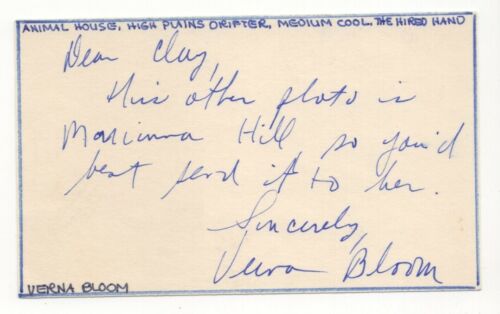 ANIMAL HOUSE, HIGH PLAINS DRIFTER, MEDIUM COOL, THE HIRED HAND
Dear Clay,
this other photo is
Marianna Hill, so you'd
best send it to her.
Sincerely,
Verna Bloom
VERNA BLOOM